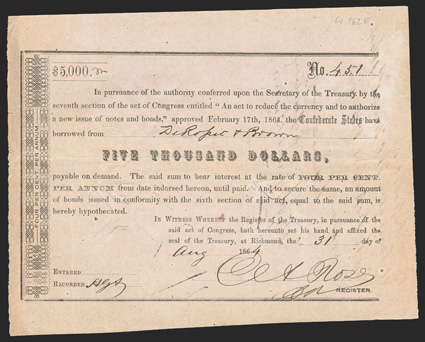 $5,000.
No. 451
In pursuance of the authority conferred upon the Secretary of the Treasury by the
seventh section of the act of Congress entitled "An act to reduce the currency and to authorize
a new issue of notes and bonds," approved February 17th, 1864, the Confederate States have
borrowed from DeRosset & Brown
FIVE THOUSAND DOLLARS,
payable on demand. The said sum to bear interest at the rate of FOUR PER CENT.
PER ANNUM from date indorsed hereon, until paid. And to secure the same, an amount
of bonds issued in conformity with the sixth section of said act, equal to the said sum, is
hereby hypothecated.
In Witness Whereof the Register of the Treasury, in pursuance of the
said act of Congress, hath hereunto set his hand and affixed the
seal of the Treasury, at Richmond, the 31 day of
Aug 1864
Rose
ENTERED
RECORDED
REGISTER.
FOUR PER CENT PER ANNUM